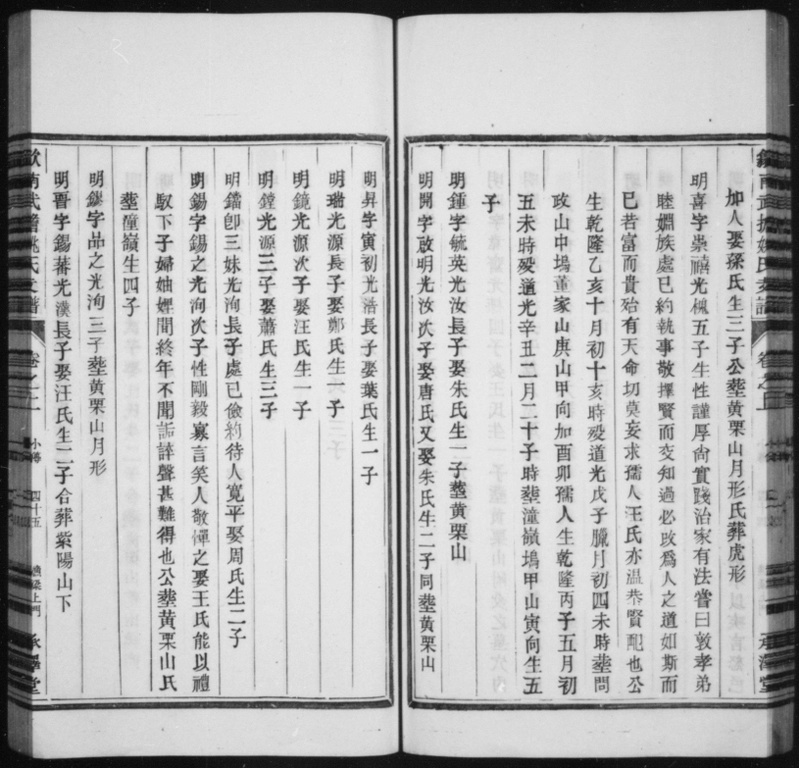 加人娶孫氏生三子公塟黄栗山月形氏葬虎形
明喜字崇禧光槐五子生性謹厚尙實踐治家有法嘗曰敦孝弟
睦婣族處已約執事敬擇賢而交知過必改爲人之道如斯而
已若富而貴殆有天命切莫妄求孺人汪氏亦温恭賢配也公
生乾隆乙亥十月初十亥時殁道光戊子臘月初四未時塟問
政山中塢童家山庚山甲向加酉卯孺人生乾隆丙子五月初
五未時殁道光辛丑二月二十子時塟潼嶺塢甲山寅向生五
子
明鍾字毓英光汝長子娶朱氏生一子塟黄栗山
明開字啟明光汝次子娶唐氏又娶朱氏生二子同塟黄栗山
明昇字寅初光浩長子娶葉氏生一子
明瑞光源長子娶鄭氏生一子
明鏡光源次子娶汪氏生一子
明鏜光源三子娶蕭氏生三子
明鐺卽三妹光洵長子處已儉約待人寬平娶周氏生二子
明錫字錫之光洵次子性剛毅寡言笑人敬憚之娶王氏能以禮
馭下子婦妯娌間終年不聞詬誶聲甚難得也公塟黄栗山氏
塟潼嶺生四子
明鎂字品之光洵三子塟黄栗山月形
明晋字錫蕃光漢長子娶汪氏生二子合葬紫陽山下
卷之上
小傳
四十五
承澤堂